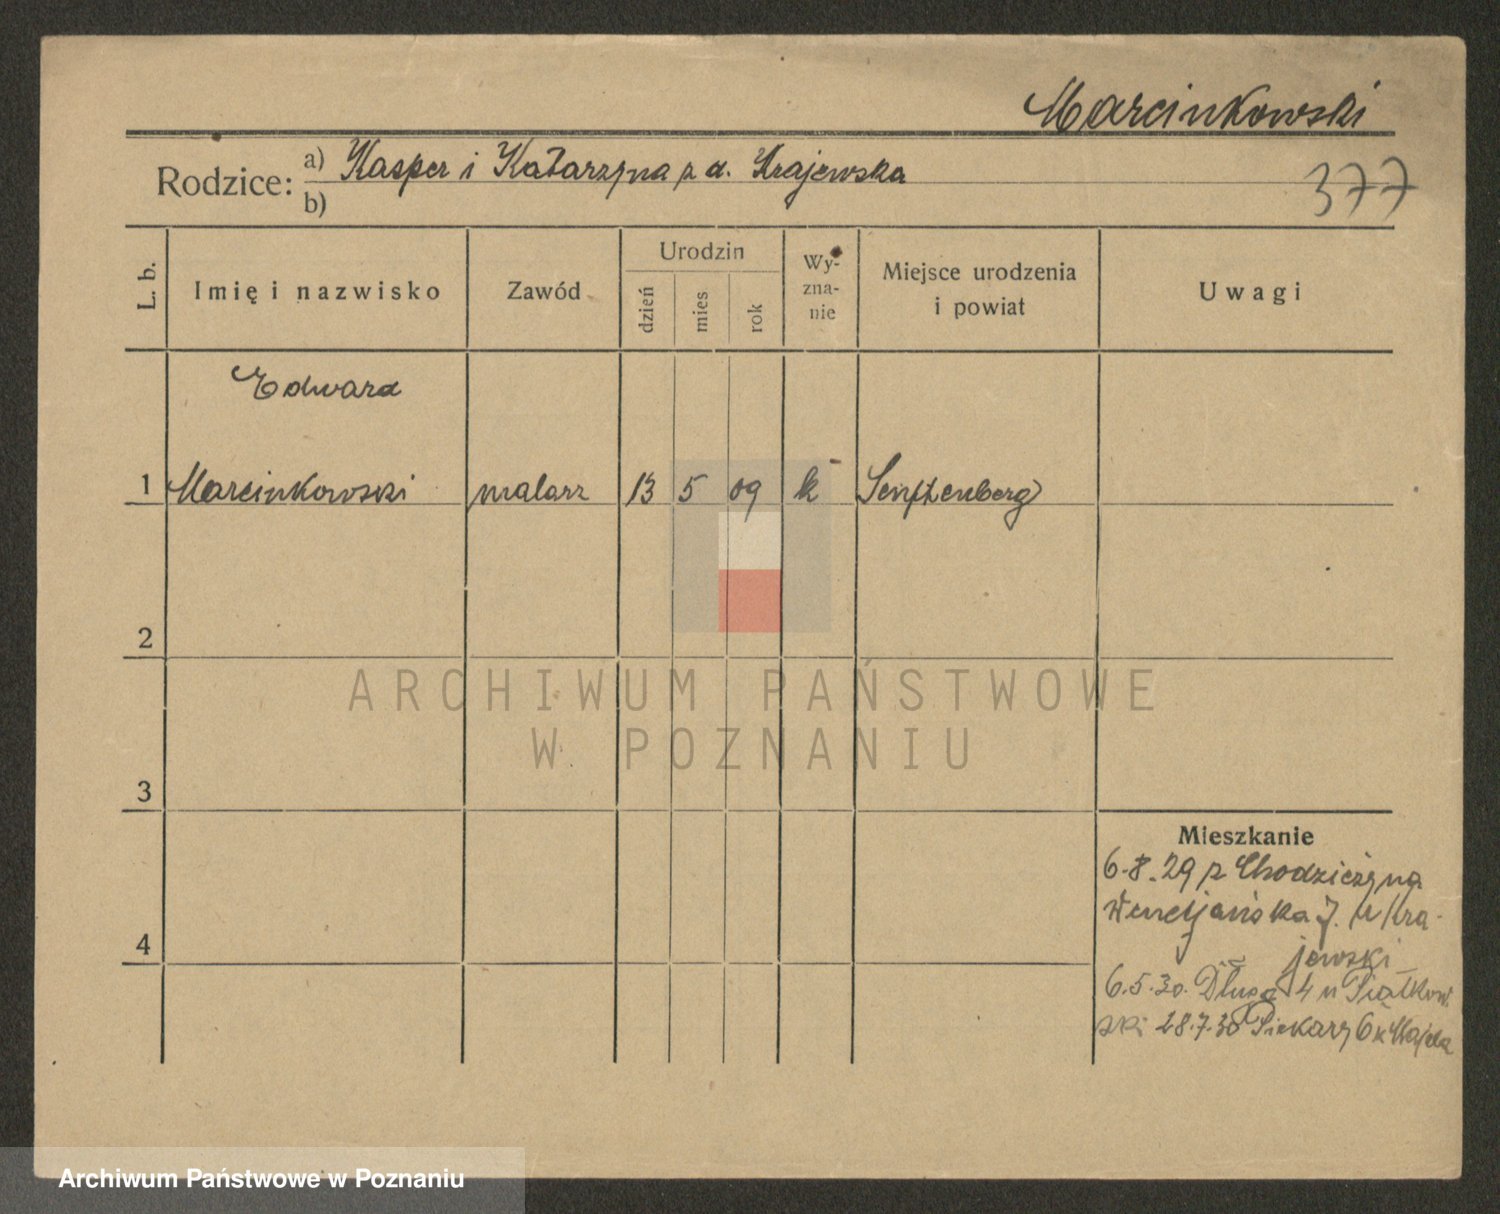 Marcinkowski
Rodzice: a) Kasper i Katarzyna z d. Krajewska
377
b)
L. b.
Imię i nazwisko
Zawód
Urodzin
dzień
mies
rok
Wy-
zna-
nie
Miejsce urodzenia
i powiat
Uwagi
Edward
1 Marcinkowski malarz 13 5 09 k Senftenberg
2
ARCHIWUM PAŃSTWOWE
W POZNANIU
3
Mieszkanie
6.8.29 z Chodzieży na
Wenecjańska 7. u Kra-
4
jewski
6.5.30. Długa 4 u Piątkow
ski 28.7.30 Piekary 6 u
Archiwum Państwowe w Poznaniu